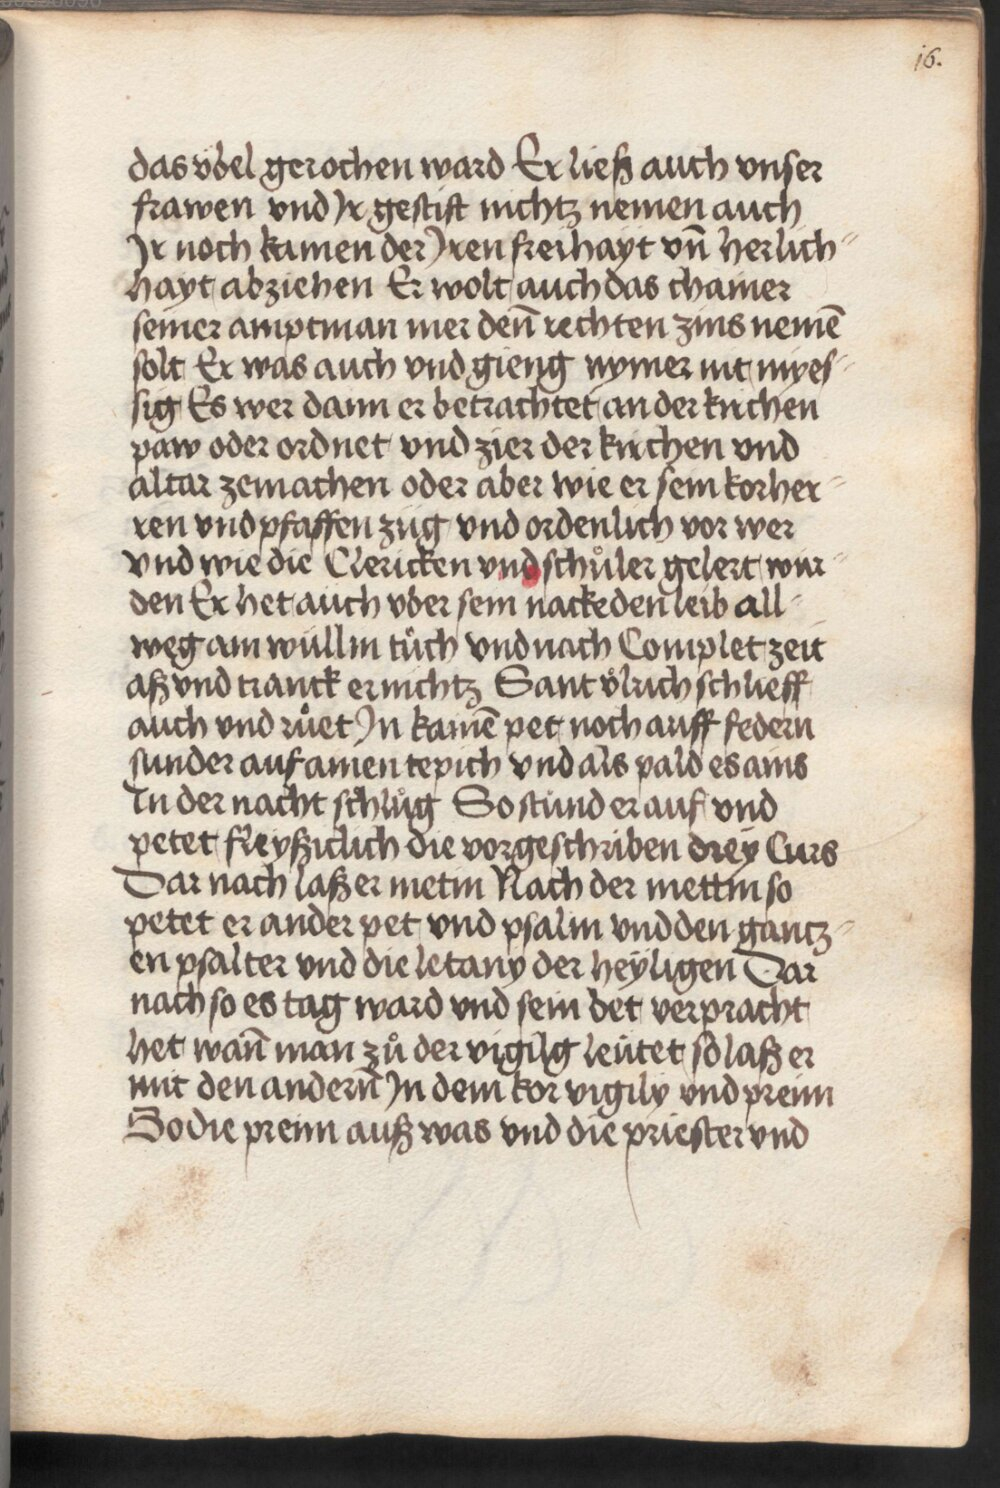 16.
das v̈bel gerochen ward Er ließ auch vnser
frawen vnd Jr gestift nichtz nemen auch
Jr noch kainen der Jren freihayt vn̄ herlich⸗
hayt abziehen Er wolt auch das chainer
seiner amptman mer den̄ rechten zins neme̅
solt Er was auch vnd gieng nymer nit myes⸗
sig Es wer dann er betrachtet an der kirchen
paw oder ordnet vnd zier der kirchen vnd
altar zemachen oder aber wie er sein korher⸗
ren vnd pfaffen züg vnd ordenlich vor wer
vnd wie die Clericken vnd schůler gelert wur⸗
den Er het auch vber sein nackeden leib all⸗
weg ain wüllin tůch vnd nach Complet zeit
aß vnd tranck er nichtz Sant v̊lrich schlieff
auch vnd růet Jn kaine̅ pet noch auff federn
sunder auf ainen tepich vnd als pald es ains
In der nacht schlůg So stůnd er auf vnd
petet fleyßiclich die vorgeschriben dreÿ Curs
Dar nach laß er metin Nach der mettin so
petet er ander pet vnd psalm vnd den gantz⸗
en psalter vnd die letany der heÿligen Dar
nach so es tag ward vnd sein bet verpracht
het wan̄ man zů der vigilg leütet so laß er
mit den andern̄ Jn dem kor vigily vnd preim
So die preim auß was vnd die priester vnd